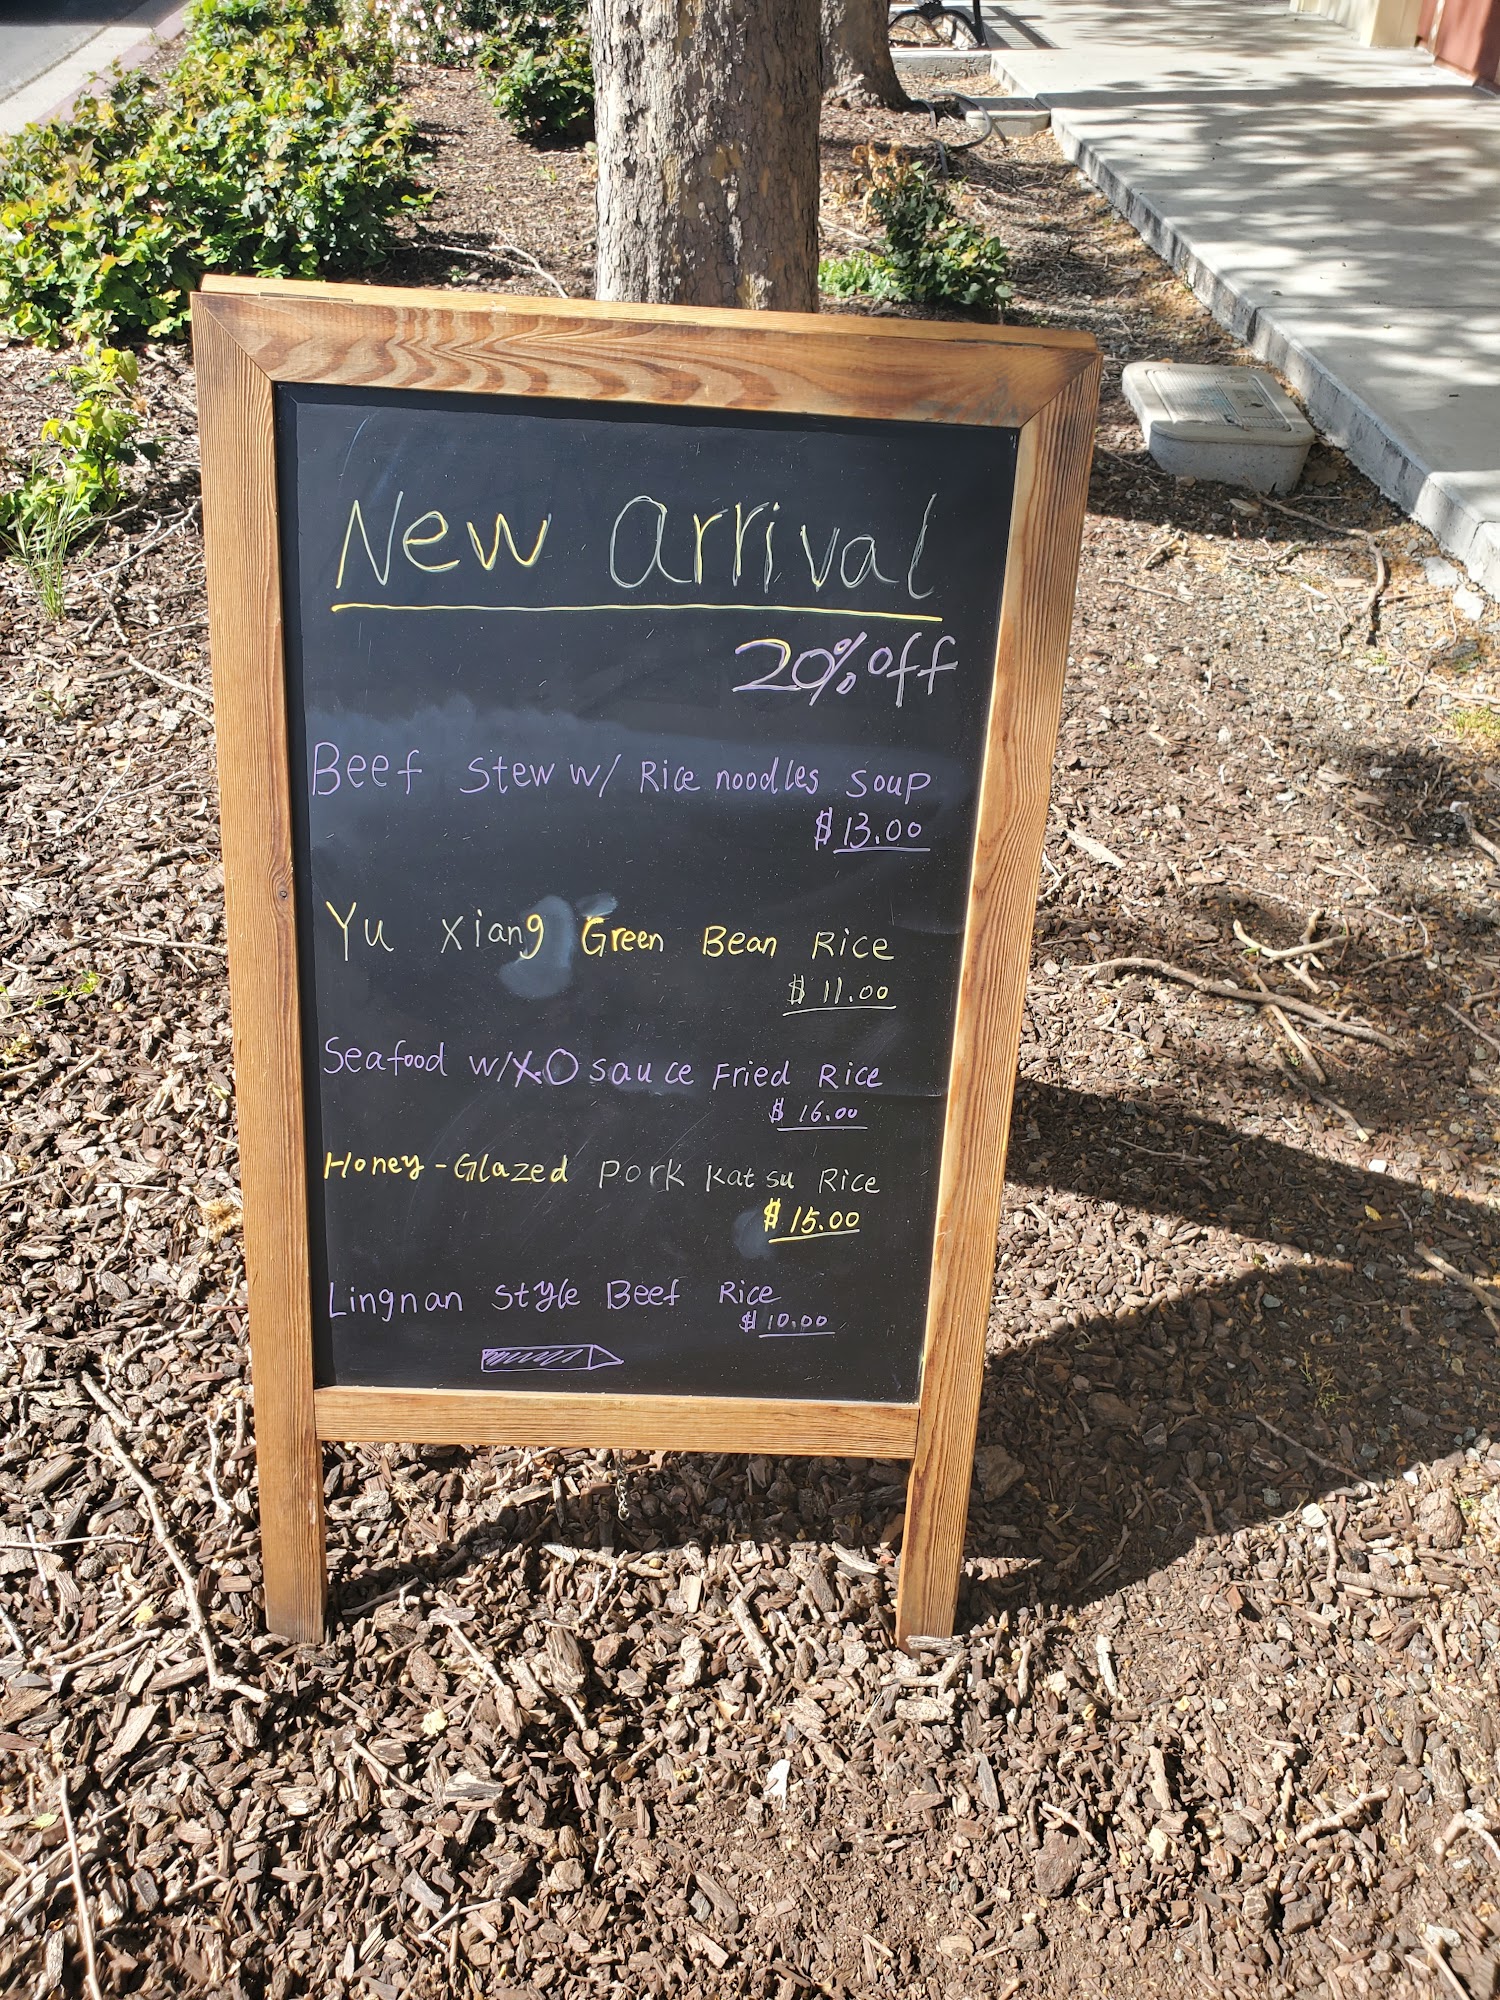 New arrival
20% off
Beef stew w/ Rice noodles soup
$ 13.00
Yu Xiang Green Bean Rice
$ 11.00
Seafood w/X.O sauce Fried Rice
$ 16.00
Honey-Glazed Pork Katsu Rice
$ 15.00
Lingnan style Beef Rice
$ 10.00